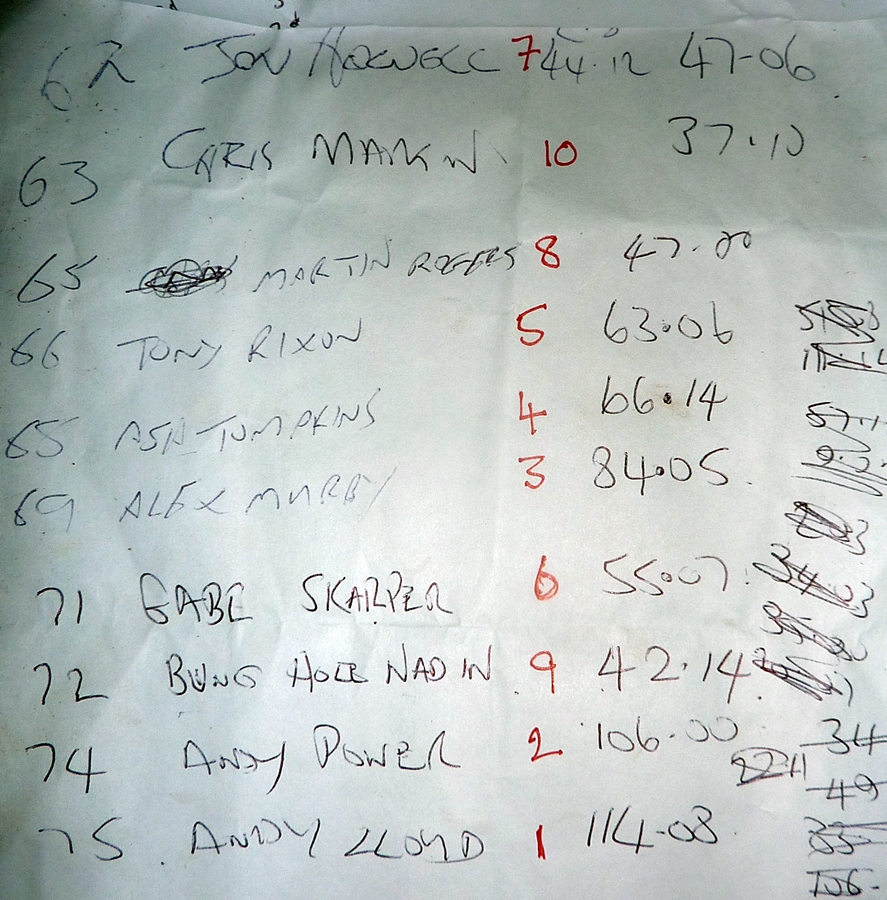 62 JON HOLWELL 7 44.12 47-06
63 CHRIS 10 37.10
65 MARTIN ROGERS 8 47.00
66 TONY RIXON 5 63.06
65 ASH TOMPKINS 4 66.14
69 ALEX MURBY 3 84.05
71 GABE SKARPER 6 55.07
72 BUNG HOLE NADIN 9 42.14
74 ANDY POWER 2 106.00
75 ANDY LLOYD 1 114-03
34
49